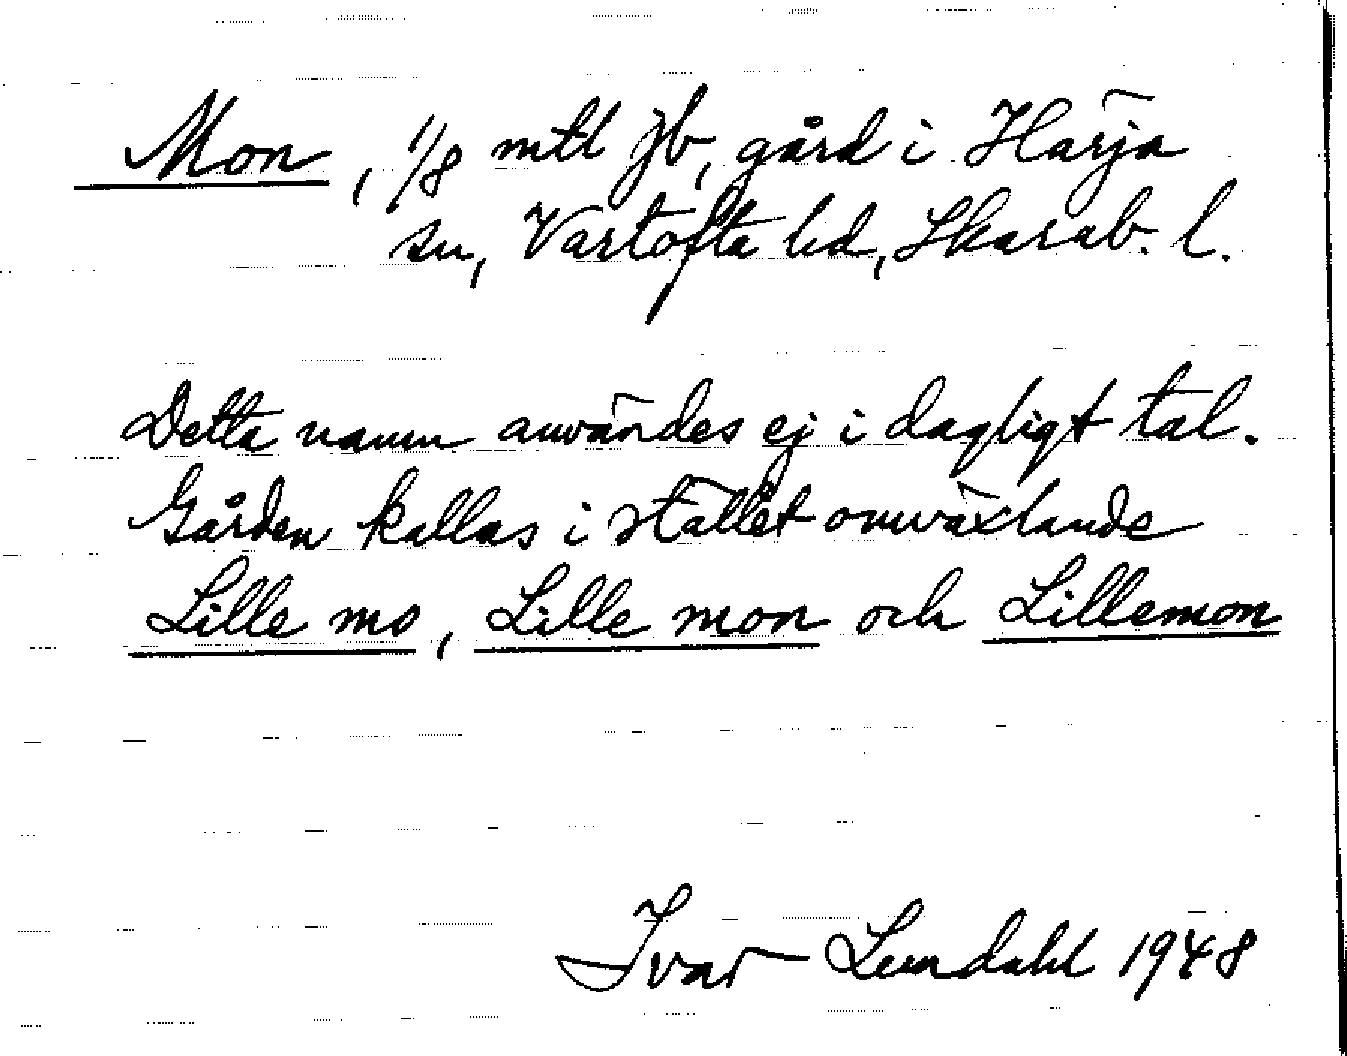 Mon, 1/8 mtl jb, gård i Härja
sn, Vartofta hd, Skarab. l.
Detta namn användes ej i dagligt tal.
Gården kallas i stället omväxlande
Lille mo, Lille mon och Lillemon
Ivar Lundahl 1948